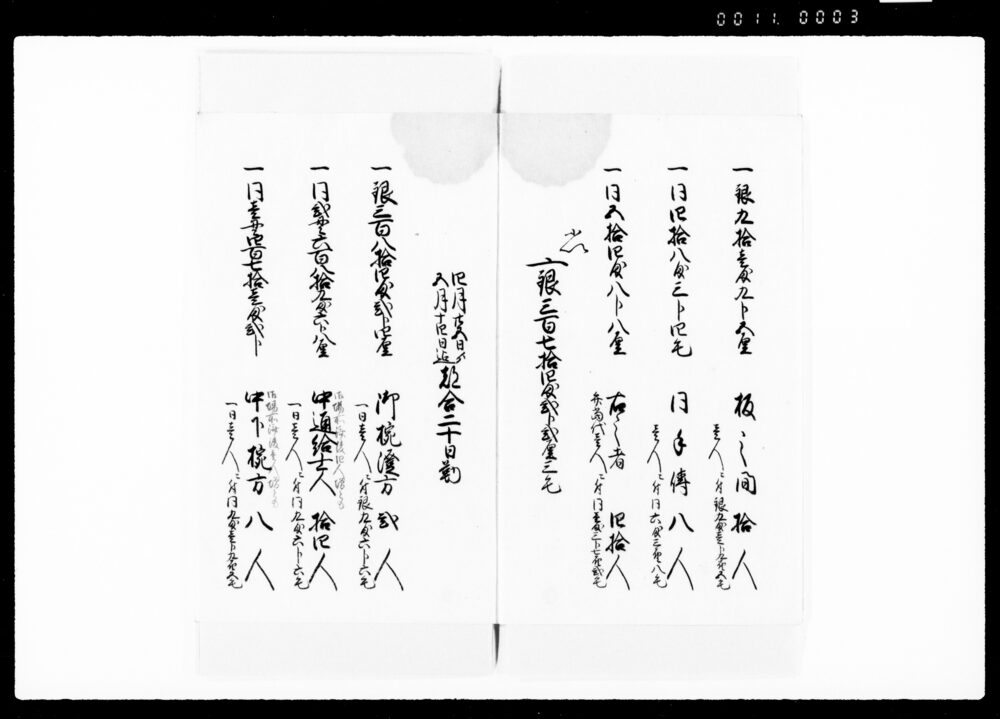 0011. 0003
一銀九拾壱匁九分五厘
板之間拾人
壱人ニ付銀九匁壱分九厘五毛
一同四拾八匁三分四毛
同手傳八人
壱人ニ付同六匁三厘八毛
一同五拾四匁八分八厘
右之者四拾人
壱人ニ付同壱匁三分七厘弐毛
〆銀三百七拾四匁弐分弐厘三毛
五月十四日迄都合二十日勤
一銀三百八拾四匁弐分四厘
御椀澄方弐人
一日壱人ニ付銀九匁六分六毛
一同弐貫六百八拾九匁六分八厘
中通給士人拾四人
一日壱人ニ付同九匁六分六毛
一同壱貫四百七拾壱匁弐分
中下椀方八人
一日壱人ニ付同九匁壱分九厘五毛